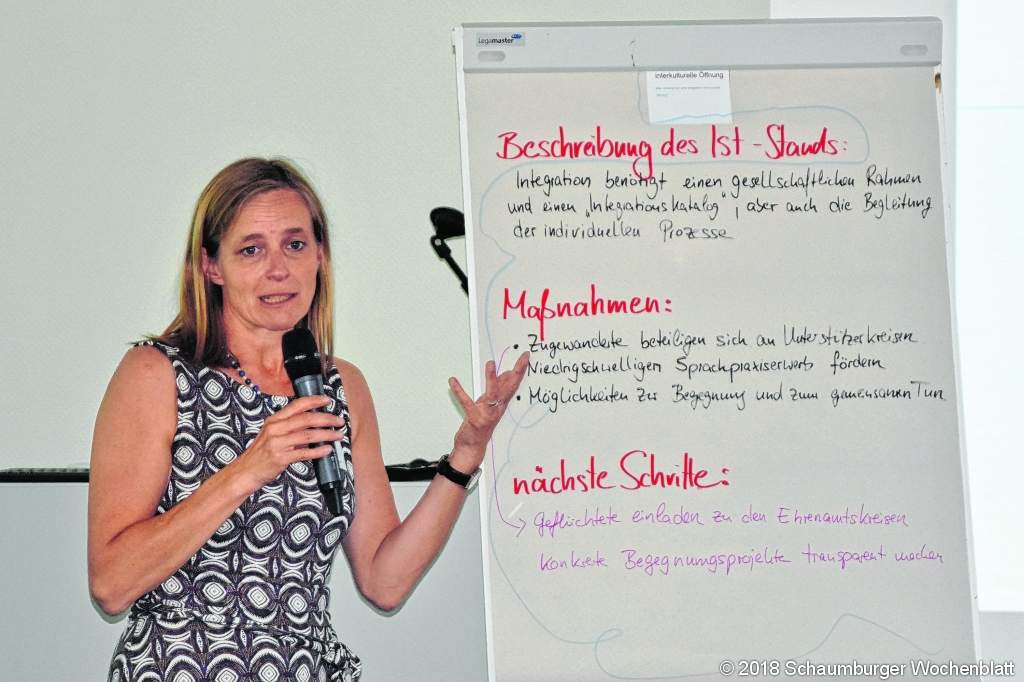 Legamaster
Interkulturelle Öffnung
Beschreibung des Ist-Stands:
Integration benötigt einen gesellschaftlichen Rahmen
und einen „Integrationskatalog", aber auch die Begleitung
der individuellen Prozesse
Maßnahmen:
• Zugewanderte beteiligen sich an Unterstützerkreisen
Niedrigschwelligen Sprachpraxiserwerb fördern
• Möglichkeiten zur Begegnung und zum gemeinsamen Tun
nächste Schritte:
Geflüchtete einladen zu den Ehrenamtskreisen
Konkrete Begegnungsprojekte transparent machen
© 2018 Schaumburger Wochenblatt